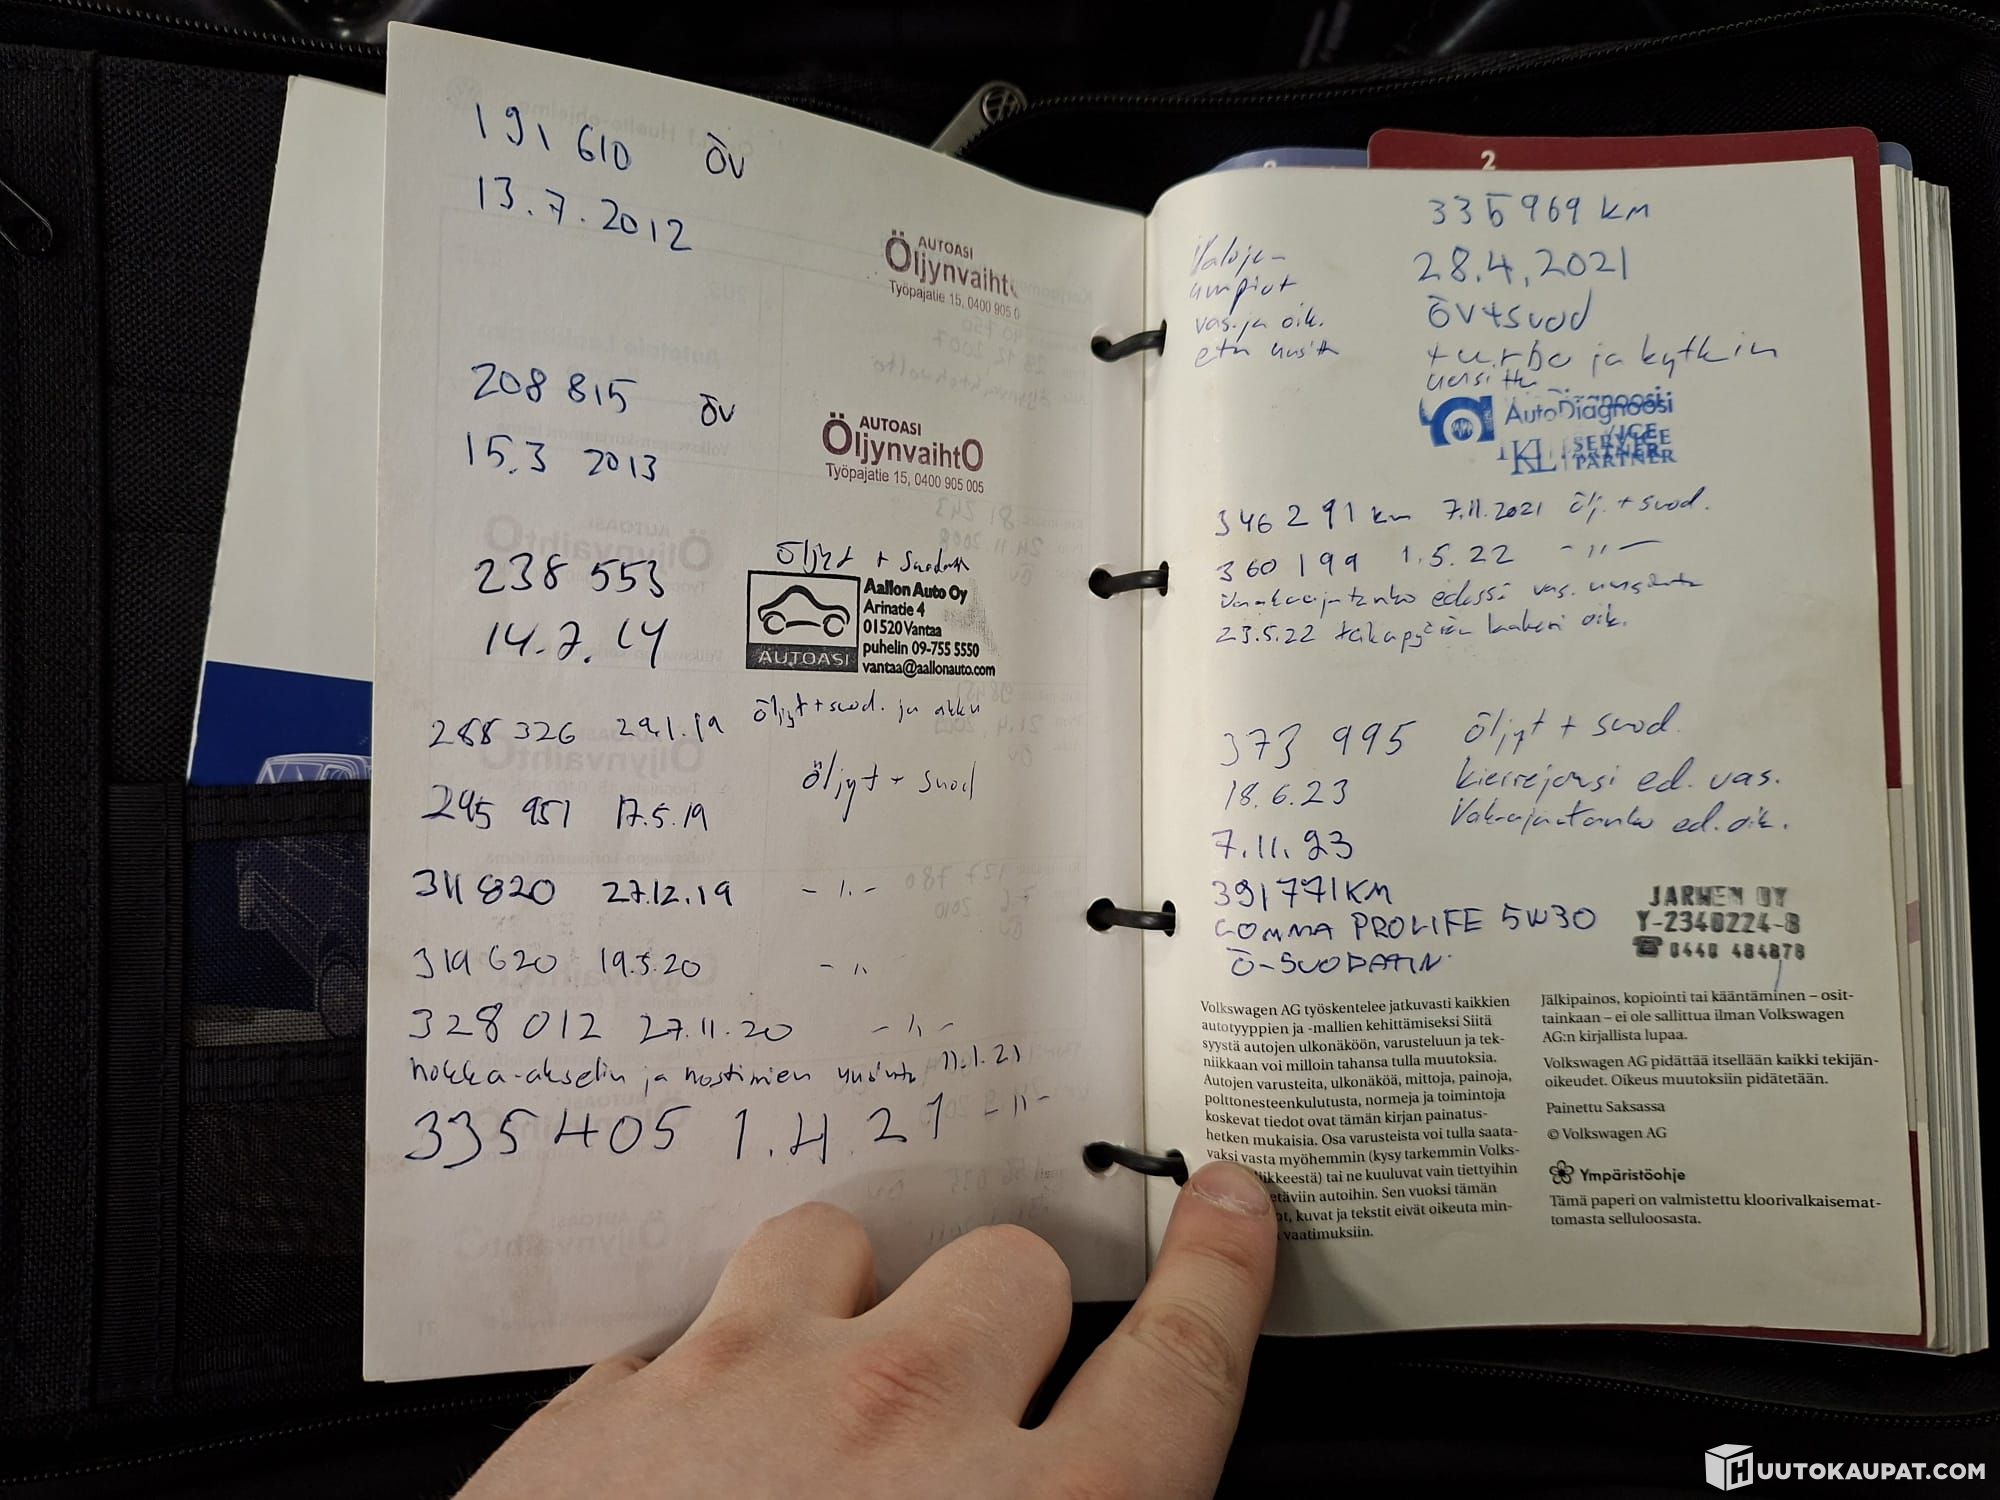 191 610 ÖV
13.7.2012
AUTOASI
Öljynvaiht
Työpajatie 15, 0400 905 0
208 815 ÖV
15.3 2013
AUTOASI
ÖljynvaihtO
Työpajatie 15, 0400 905 005
238 553
14.7.14
Öljyt +
AUTOASI
Aallon Auto Oy
Arinatie 4
01520 Vantaa
puhelin 09-755 5550
vantaa@aallonauto.com
288 326 29.1.19 öljyt + suod. ja akku
295 951 17.5.19 öljyt + suod
311 820 27.12.19 -"-
319 620 19.5.20 -"-
328 012 27.11.20 -"-
nokka-akselin ja nostimien uusinta 11.1.21
335 405 1.4.21 -"-
2
335969 km
28.4.2021
ÖV+suod
turbo ja kytkin
uusittu
Valoje-
umpiot
vas. ja oik.
etu uusittu
AutoDiagnoosi
KL SERVICE
PARTNER
346 291 km 7.11.2021 Ölj. + suod.
360 199 1.5.22 -"-
edessä vas. uusinta
23.5.22 takapyörän laakeri oik.
373 995 öljyt + suod.
18.6.23 kierrejousi ed. vas.
ed. oik.
7.11.23
391771KM
COMMA PROLIFE 5W30
Ö-SUODATIN
JARMEN OY
Y-2340224-8
☎ 0440 484878
Volkswagen AG työskentelee jatkuvasti kaikkien
autotyyppien ja -mallien kehittämiseksi Siitä
syystä autojen ulkonäköön, varusteluun ja tek-
niikkaan voi milloin tahansa tulla muutoksia.
Autojen varusteita, ulkonäköä, mittoja, painoja,
polttonesteenkulutusta, normeja ja toimintoja
koskevat tiedot ovat tämän kirjan painatus-
hetken mukaisia. Osa varusteista voi tulla saata-
vaksi vasta myöhemmin (kysy tarkemmin Volks-
liikkeestä) tai ne kuuluvat vain tiettyihin
etäviin autoihin. Sen vuoksi tämän
ot, kuvat ja tekstit eivät oikeuta min-
vaatimuksiin.
Jälkipainos, kopiointi tai kääntäminen – osit-
tainkaan – ei ole sallittua ilman Volkswagen
AG:n kirjallista lupaa.
Volkswagen AG pidättää itsellään kaikki tekijän-
oikeudet. Oikeus muutoksiin pidätetään.
Painettu Saksassa
© Volkswagen AG
Ympäristöohje
Tämä paperi on valmistettu kloorivalkaisemat-
tomasta selluloosasta.
HUUTOKAUPAT.COM